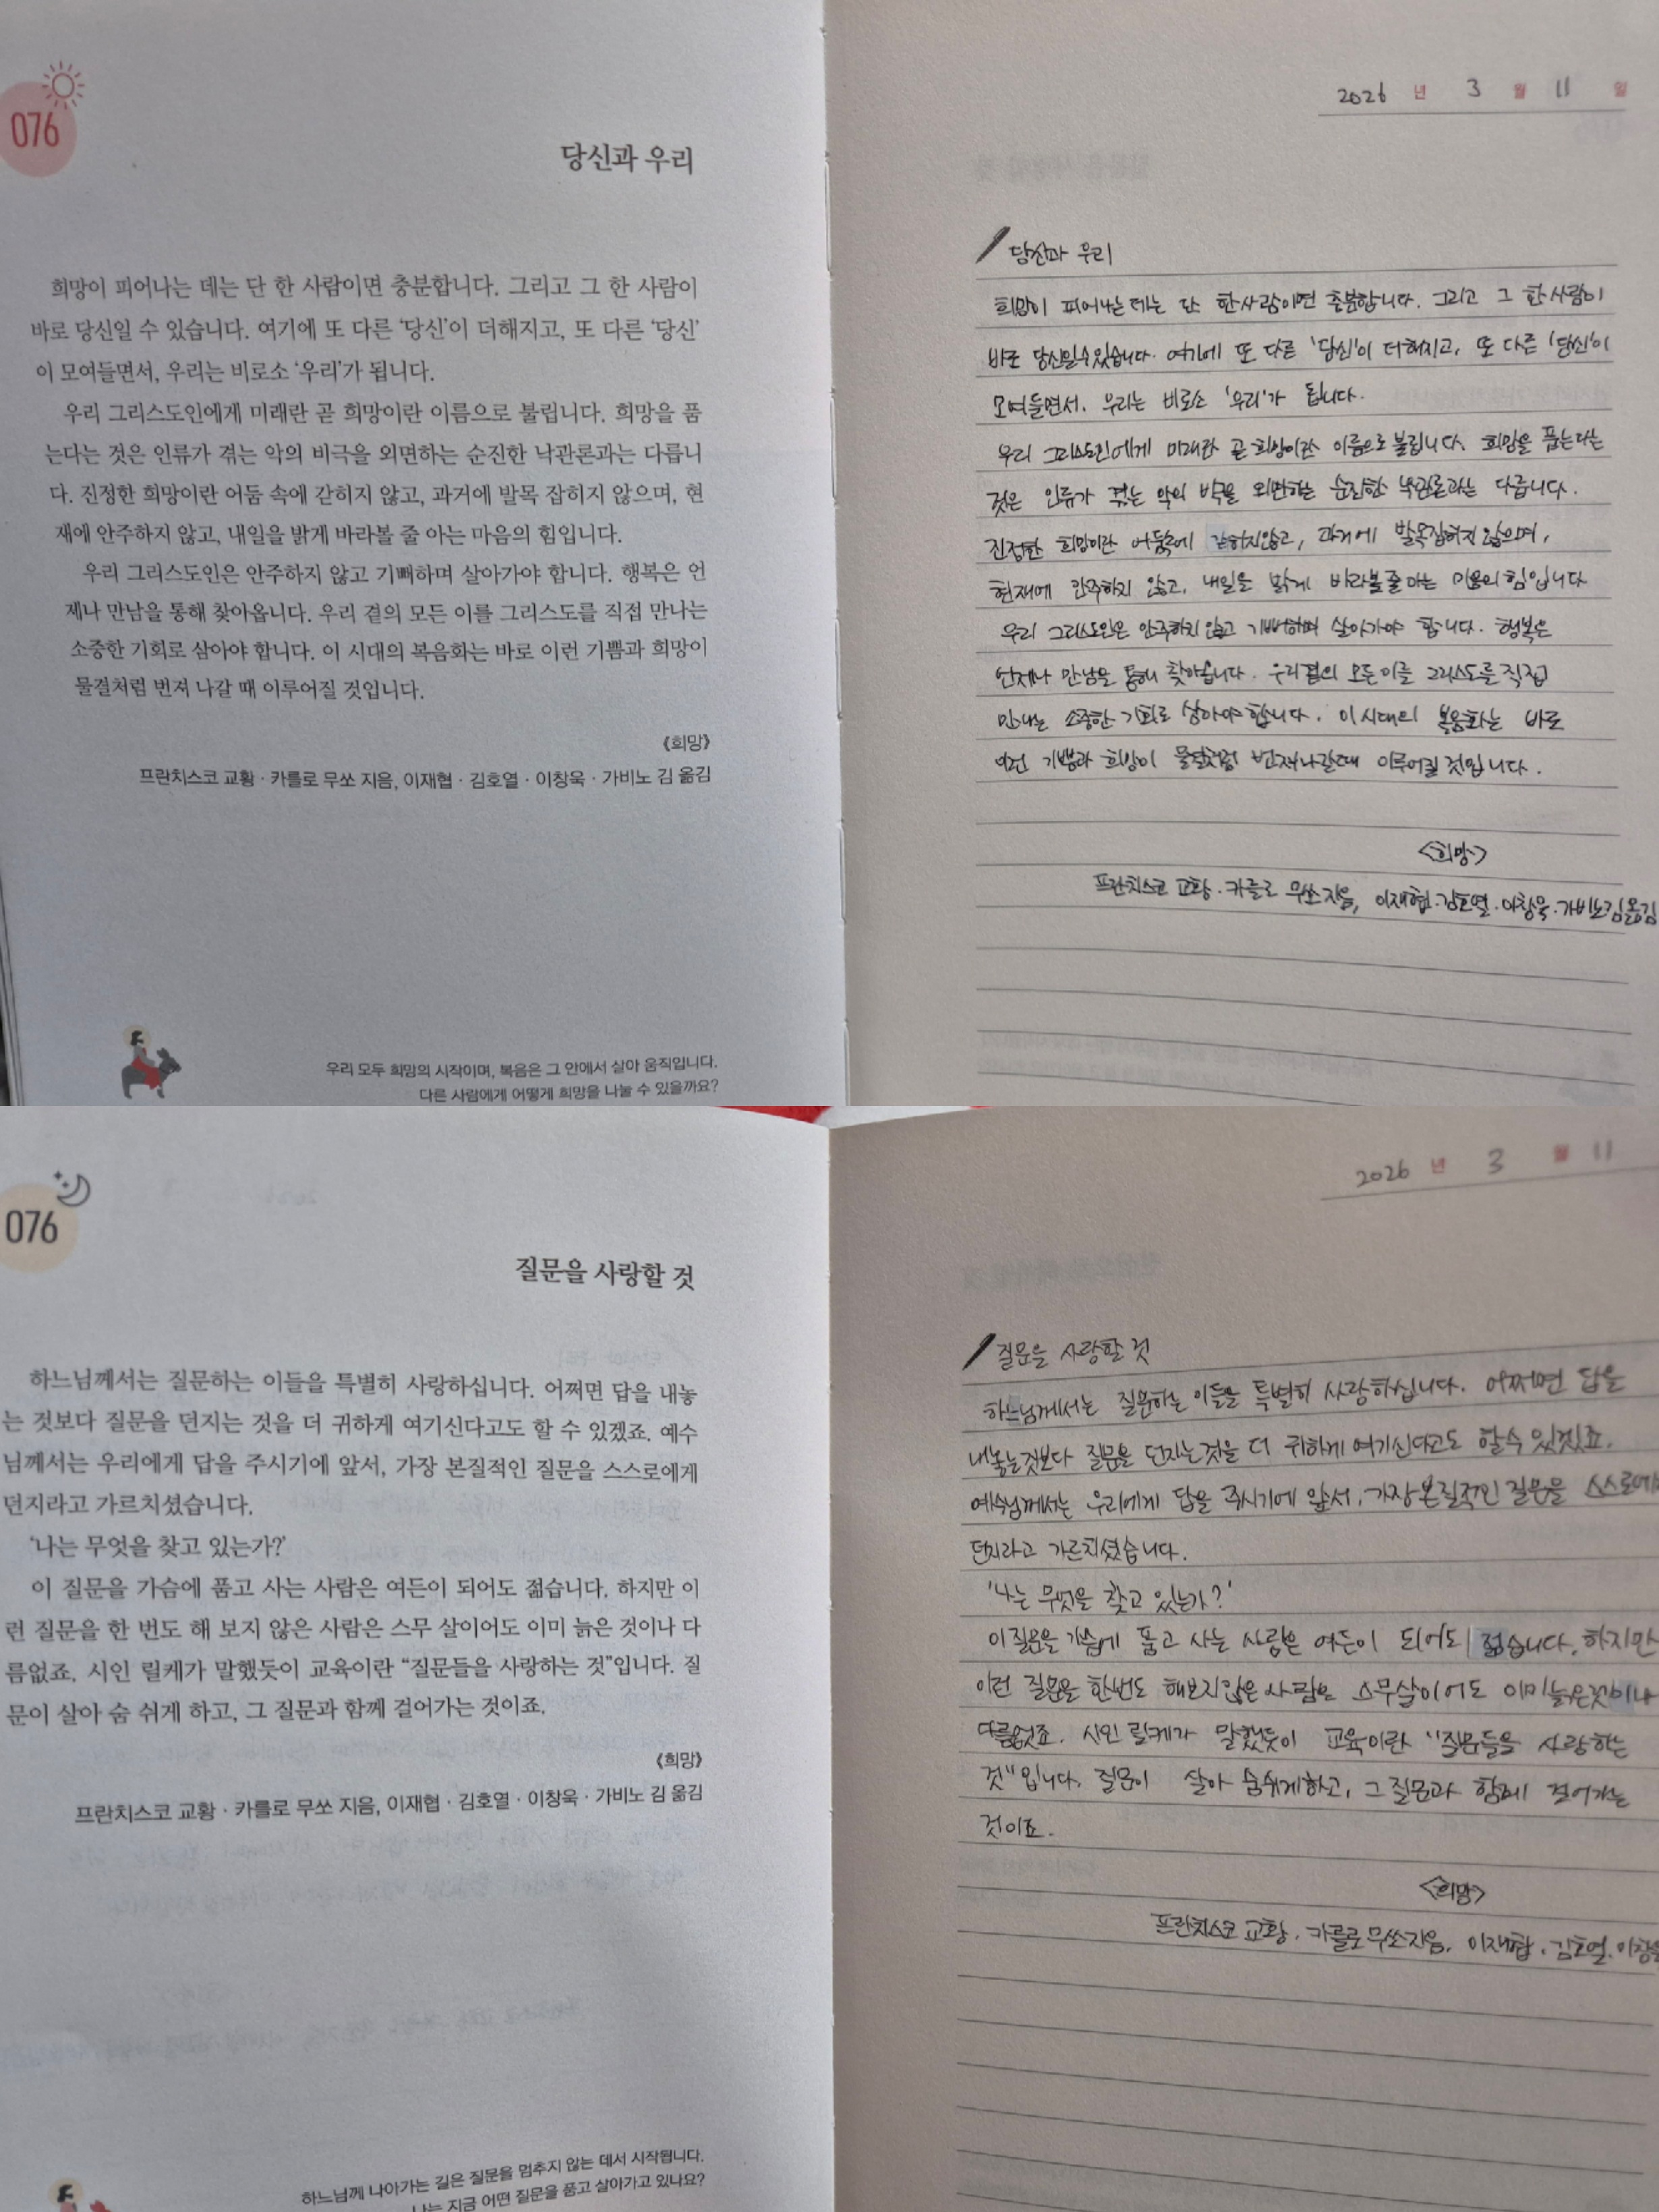 076
당신과 우리
희망이 피어나는 데는 단 한 사람이면 충분합니다. 그리고 그 한 사람이
바로 당신일 수 있습니다. 여기에 또 다른 ‘당신’이 더해지고, 또 다른 ‘당신’
이 모여들면서, 우리는 비로소 ‘우리’가 됩니다.
우리 그리스도인에게 미래란 곧 희망이란 이름으로 불립니다. 희망을 품
는다는 것은 인류가 겪는 악의 비극을 외면하는 순진한 낙관론과는 다릅니
다. 진정한 희망이란 어둠 속에 갇히지 않고, 과거에 발목 잡히지 않으며, 현
재에 안주하지 않고, 내일을 밝게 바라볼 줄 아는 마음의 힘입니다.
우리 그리스도인은 안주하지 않고 기뻐하며 살아가야 합니다. 행복은 언
제나 만남을 통해 찾아옵니다. 우리 곁의 모든 이를 그리스도를 직접 만나는
소중한 기회로 삼아야 합니다. 이 시대의 복음화는 바로 이런 기쁨과 희망이
물결처럼 번져 나갈 때 이루어질 것입니다.
《희망》
프란치스코 교황 · 카를로 무쏘 지음, 이재협 · 김호열 · 이창욱 · 가비노 김 옮김
우리 모두 희망의 시작이며, 복음은 그 안에서 살아 움직입니다.
다른 사람에게 어떻게 희망을 나눌 수 있을까요?
2026 년 3 월 11 일
당신과 우리
희망이 피어나는데는 단 한사람이면 충분합니다. 그리고 그 한사람이
바로 당신일수있습니다. 여기에 또 다른 '당신'이 더해지고, 또 다른 '당신'이
모여들면서. 우리는 비로소 '우리'가 됩니다.
우리 그리스도인에게 미래란 곧 희망이란 이름으로 불립니다. 희망을 품는다는
것은 인류가 겪는 악의 비극을 외면하는 순진한 낙관론과는 다릅니다.
진정한 희망이란 어둠속에 갇히지않고, 과거에 발목잡히지 않으며,
현재에 안주하지 않고, 내일을 밝게 바라볼줄아는 마음의 힘입니다
우리 그리스도인은 안주하지않고 기뻐하며 살아가야 합니다. 행복은
언제나 만남을 통해 찾아옵니다. 우리곁의 모든이를 그리스도를 직접
만나는 소중한 기회로 삼아야 합니다. 이시대의 복음화는 바로
이런 기쁨과 희망이 물결처럼 번져나갈때 이루어질것입니다.
<희망>
프란치스코 교황 · 카를로 무쏘지음, 이재협 · 김호열 · 이창욱 · 가비노김옮김
076
질문을 사랑할 것
하느님께서는 질문하는 이들을 특별히 사랑하십니다. 어쩌면 답을 내놓
는 것보다 질문을 던지는 것을 더 귀하게 여기신다고도 할 수 있겠죠. 예수
님께서는 우리에게 답을 주시기에 앞서, 가장 본질적인 질문을 스스로에게
던지라고 가르치셨습니다.
‘나는 무엇을 찾고 있는가?’
이 질문을 가슴에 품고 사는 사람은 여든이 되어도 젊습니다. 하지만 이
런 질문을 한 번도 해 보지 않은 사람은 스무 살이어도 이미 늙은 것이나 다
름없죠. 시인 릴케가 말했듯이 교육이란 “질문들을 사랑하는 것”입니다. 질
문이 살아 숨 쉬게 하고, 그 질문과 함께 걸어가는 것이죠.
《희망》
프란치스코 교황 · 카를로 무쏘 지음, 이재협 · 김호열 · 이창욱 · 가비노 김 옮김
하느님께 나아가는 길은 질문을 멈추지 않는 데서 시작됩니다.
나는 지금 어떤 질문을 품고 살아가고 있나요?
2026 년 3 월 11
질문을 사랑할 것
하느님께서는 질문하는 이들을 특별히 사랑하십니다. 어쩌면 답을
내놓는것보다 질문을 던지는것을 더 귀하게 여기신다고도 할수 있겠죠.
예수님께서는 우리에게 답을 주시기에 앞서, 가장본질적인 질문을 스스로에게
던지라고 가르치셨습니다.
'나는 무엇을 찾고 있는가?'
이질문을 가슴에 품고 사는 사람은 여든이 되어도 젊습니다. 하지만
이런 질문을 한번도 해보지않은 사람은 스무살이어도 이미늙은것이나
다름없죠. 시인 릴케가 말했듯이 교육이란 "질문들을 사랑하는
것"입니다. 질문이 살아 숨쉬게하고, 그 질문과 함께 걸어가는
것이죠.
<희망>
프란치스코 교황. 카를로 무쏘지음. 이재협. 김호열. 이창욱